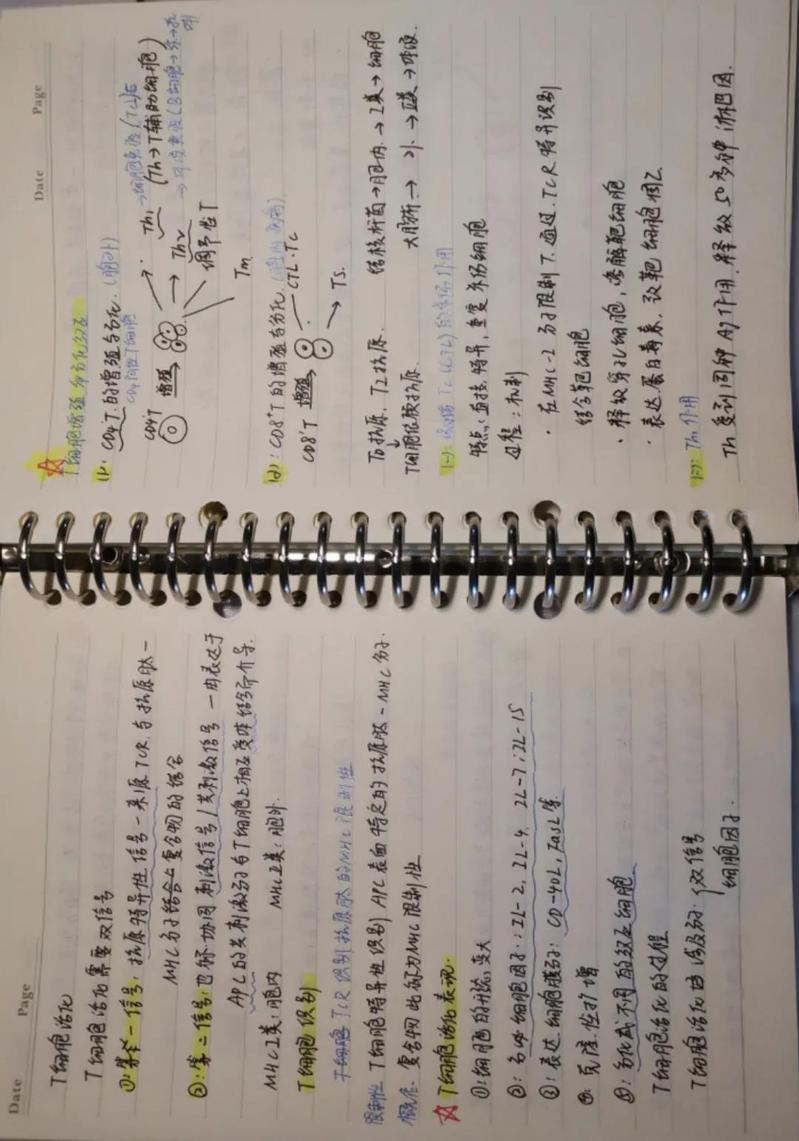 Date Page
T细胞活化
T细胞活化需要双信号
①:第一信号:抗原特异性信号—来源TCR与抗原肽—
MHC分子结合复合物的结合
②:第二信号:也称协同刺激信号/共刺激信号—由表达于
APC的共刺激分子与T细胞上相应受体结合所介导.
MHCI类:胞内 MHCII类:胞外.
T细胞识别
T细胞TCR识别抗原肽的MHC限制性
限制性 T细胞特异性识别APC表面特定的抗原肽-MHC分子.
概念. 复合物此称为MHC限制性
☆T细胞活化表现.
①:细胞的开始,变大
②:分泌细胞因子:IL-2,IL-4,IL-7,IL-15
③:表达细胞膜分子:CD-40L,FasL等
④:克隆性扩增
⑤:分化成不同的效应细胞
T细胞活化的过程
T细胞活化的涉及分:双信号
细胞因子.
Date Page
☆T细胞增殖和分化
(1):CD4T的增殖与分化.(胞外)
CD4阳性T细胞
CD4T 增殖 Th1 →细胞免疫(TCL)
(Th→T辅助细胞)
Th2 →体液免疫(B细胞→浆→抗
调节性T
Tm
(2):CD8+T的增殖与分化.(胞内)
CD8+T 增殖 CTL·Tc
Ts.
TD抗原.TI抗原. 结核杆菌→胞内→I类→细胞
T细胞依赖抗原. 大肠杆→外→II类→体液.
(一):Tc(CTL)的杀伤作用
特点:直接,特异,重复杀伤细胞
过程:机制
·在MHC-I分子限制下.通过.TCR特异识别
结合靶细胞
·释放穿孔细胞,溶解靶细胞
·表达蛋白再来,致靶细胞凋亡
(二):Th作用
Th受到同种Ag作用.释放50多种淋巴因.